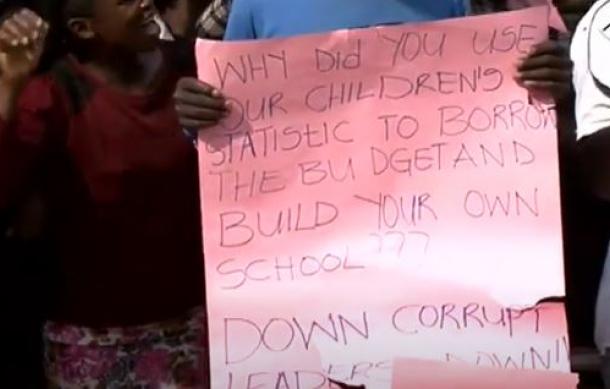 WHY DId YOU USE
OUR CHILDREN'S
STATISTIC TO BORROW
THE BUDGET AND
BUILD YOUR OWN
SCHOOL???
DOWN CORRUPT
LEADERS DOWN!!